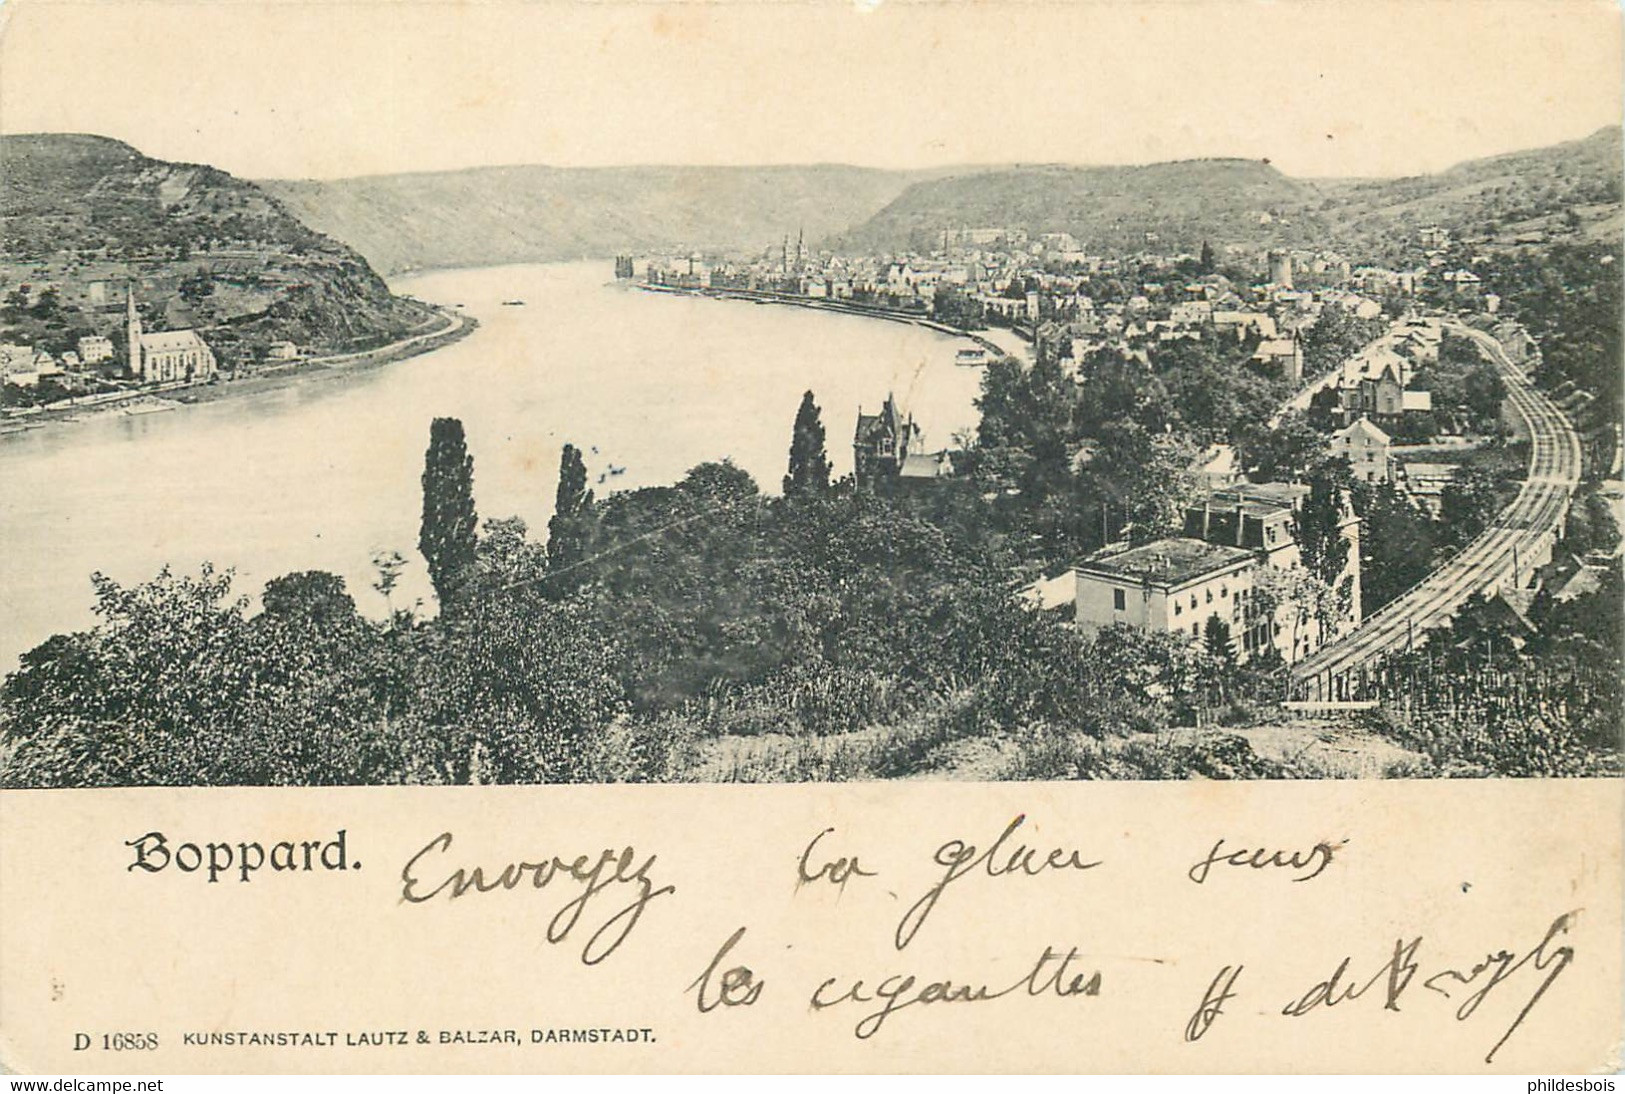 Boppard.
Envoyez la glace sans
les cigarettes
D 16858 KUNSTANSTALT LAUTZ & BALZAR, DARMSTADT.
www.delcampe.net
phildesbois